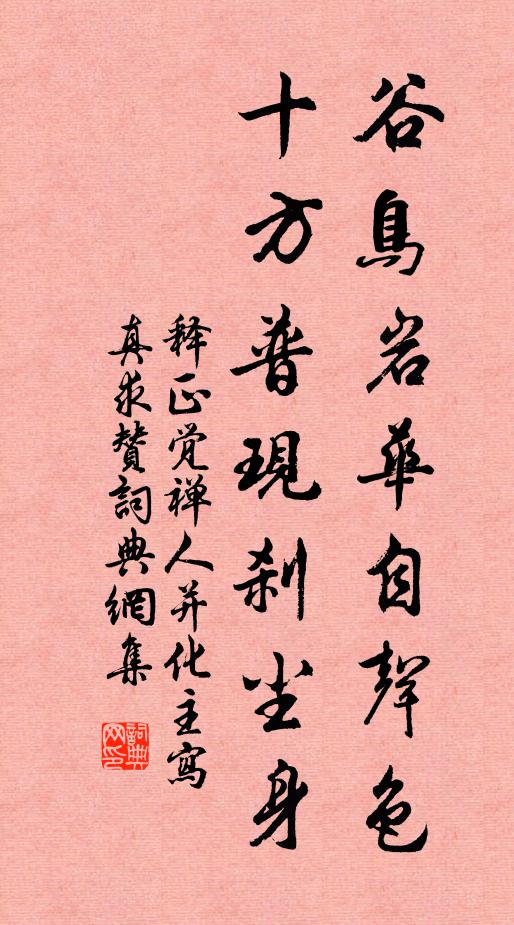 谷鳥岩華自聲色
十方普現刹尘身
释正觉禅人并化主寫
真求賛詞典網集
詞典網印